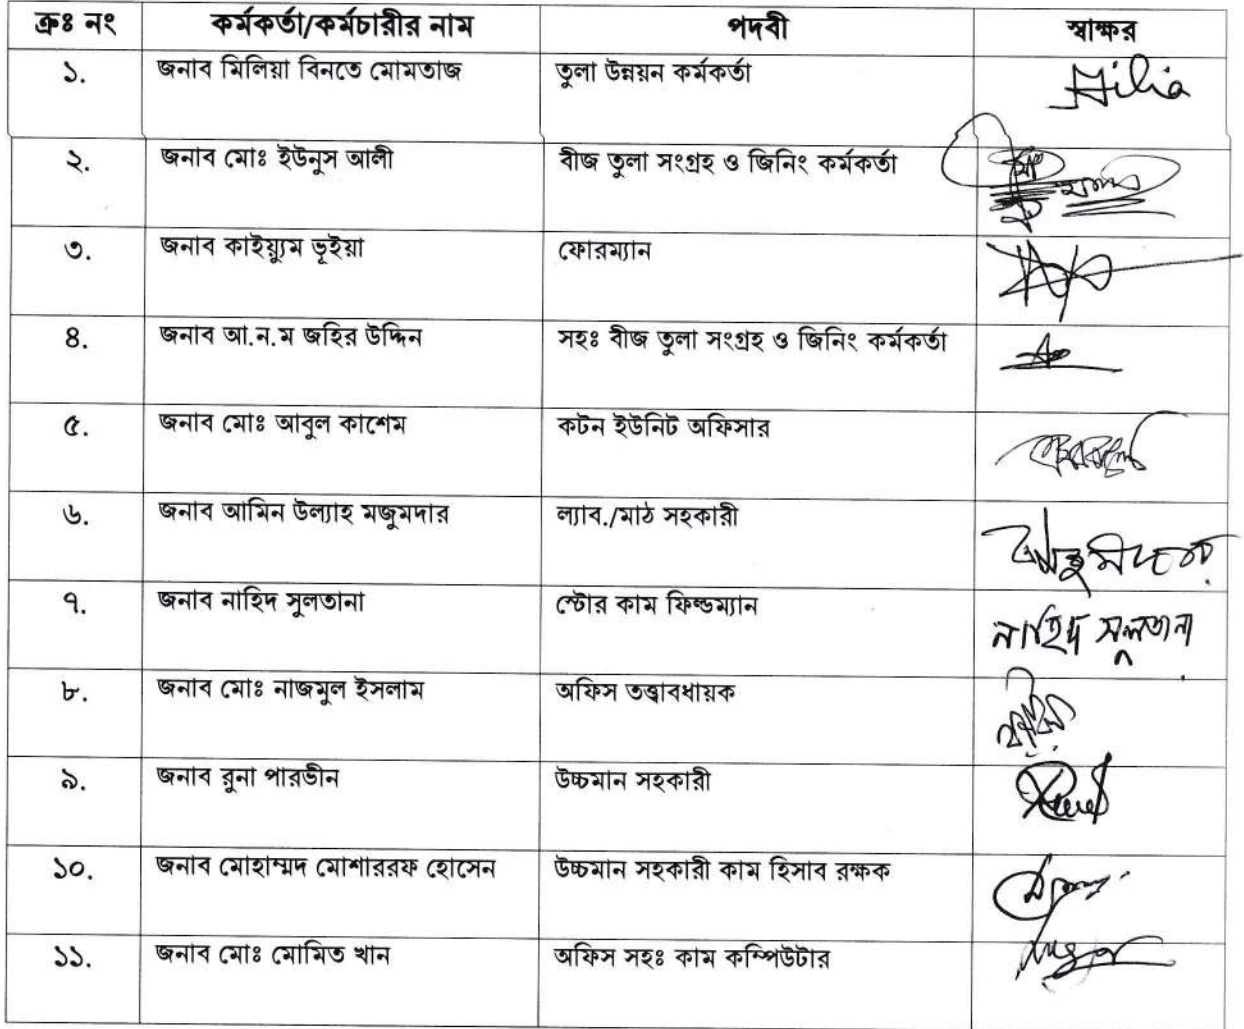 ক্রঃ নং কর্মকর্তা/কর্মচারীর নাম পদবী স্বাক্ষর
১. জনাব মিলিয়া বিনতে মোমতাজ তুলা উন্নয়ন কর্মকর্তা Milia
২. জনাব মোঃ ইউনুস আলী বীজ তুলা সংগ্রহ ও জিনিং কর্মকর্তা
৩. জনাব কাইয়্যুম ভূইয়া ফোরম্যান
৪. জনাব আ.ন.ম জহির উদ্দিন সহঃ বীজ তুলা সংগ্রহ ও জিনিং কর্মকর্তা
৫. জনাব মোঃ আবুল কাশেম কটন ইউনিট অফিসার
৬. জনাব আমিন উল্যাহ মজুমদার ল্যাব./মাঠ সহকারী মজুমদার
৭. জনাব নাহিদ সুলতানা স্টোর কাম ফিল্ডম্যান নাহিদ সুলতানা
৮. জনাব মোঃ নাজমুল ইসলাম অফিস তত্ত্বাবধায়ক
৯. জনাব রুনা পারভীন উচ্চমান সহকারী
১০. জনাব মোহাম্মদ মোশাররফ হোসেন উচ্চমান সহকারী কাম হিসাব রক্ষক
১১. জনাব মোঃ মোমিত খান অফিস সহঃ কাম কম্পিউটার